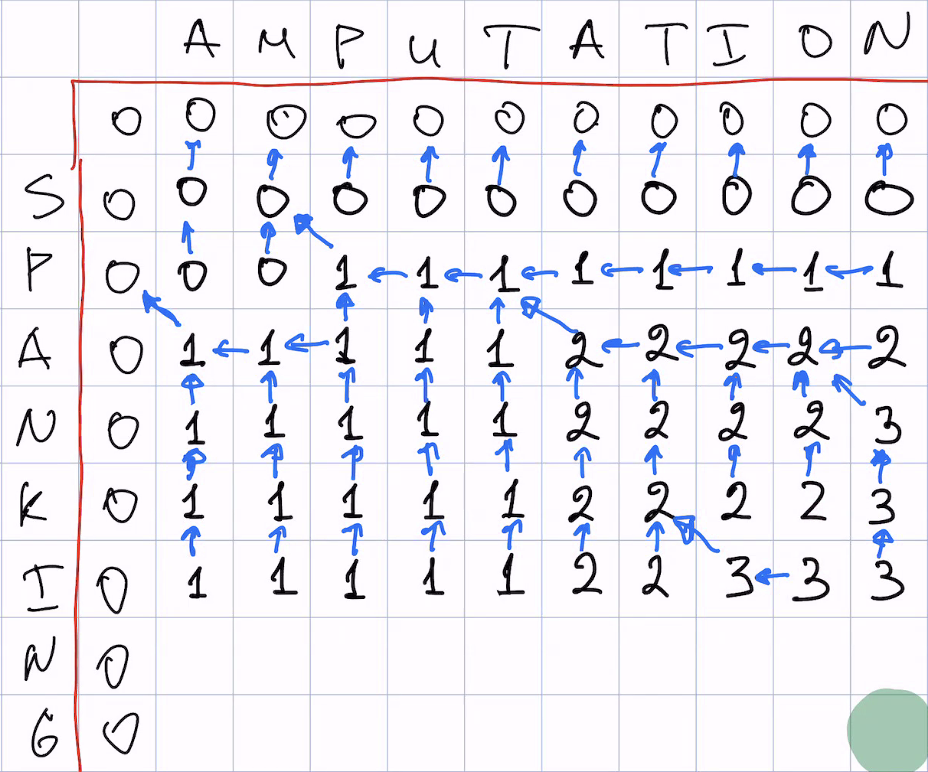 A M P U T A T I O N
0 0 0 0 0 0 0 0 0 0 0
S 0 0 0 0 0 0 0 0 0 0 0
P 0 0 0 1 1 1 1 1 1 1 1
A 0 1 1 1 1 1 2 2 2 2 2
N 0 1 1 1 1 1 2 2 2 2 3
K 0 1 1 1 1 1 2 2 2 2 3
I 0 1 1 1 1 1 2 2 3 3 3
N 0
G 0